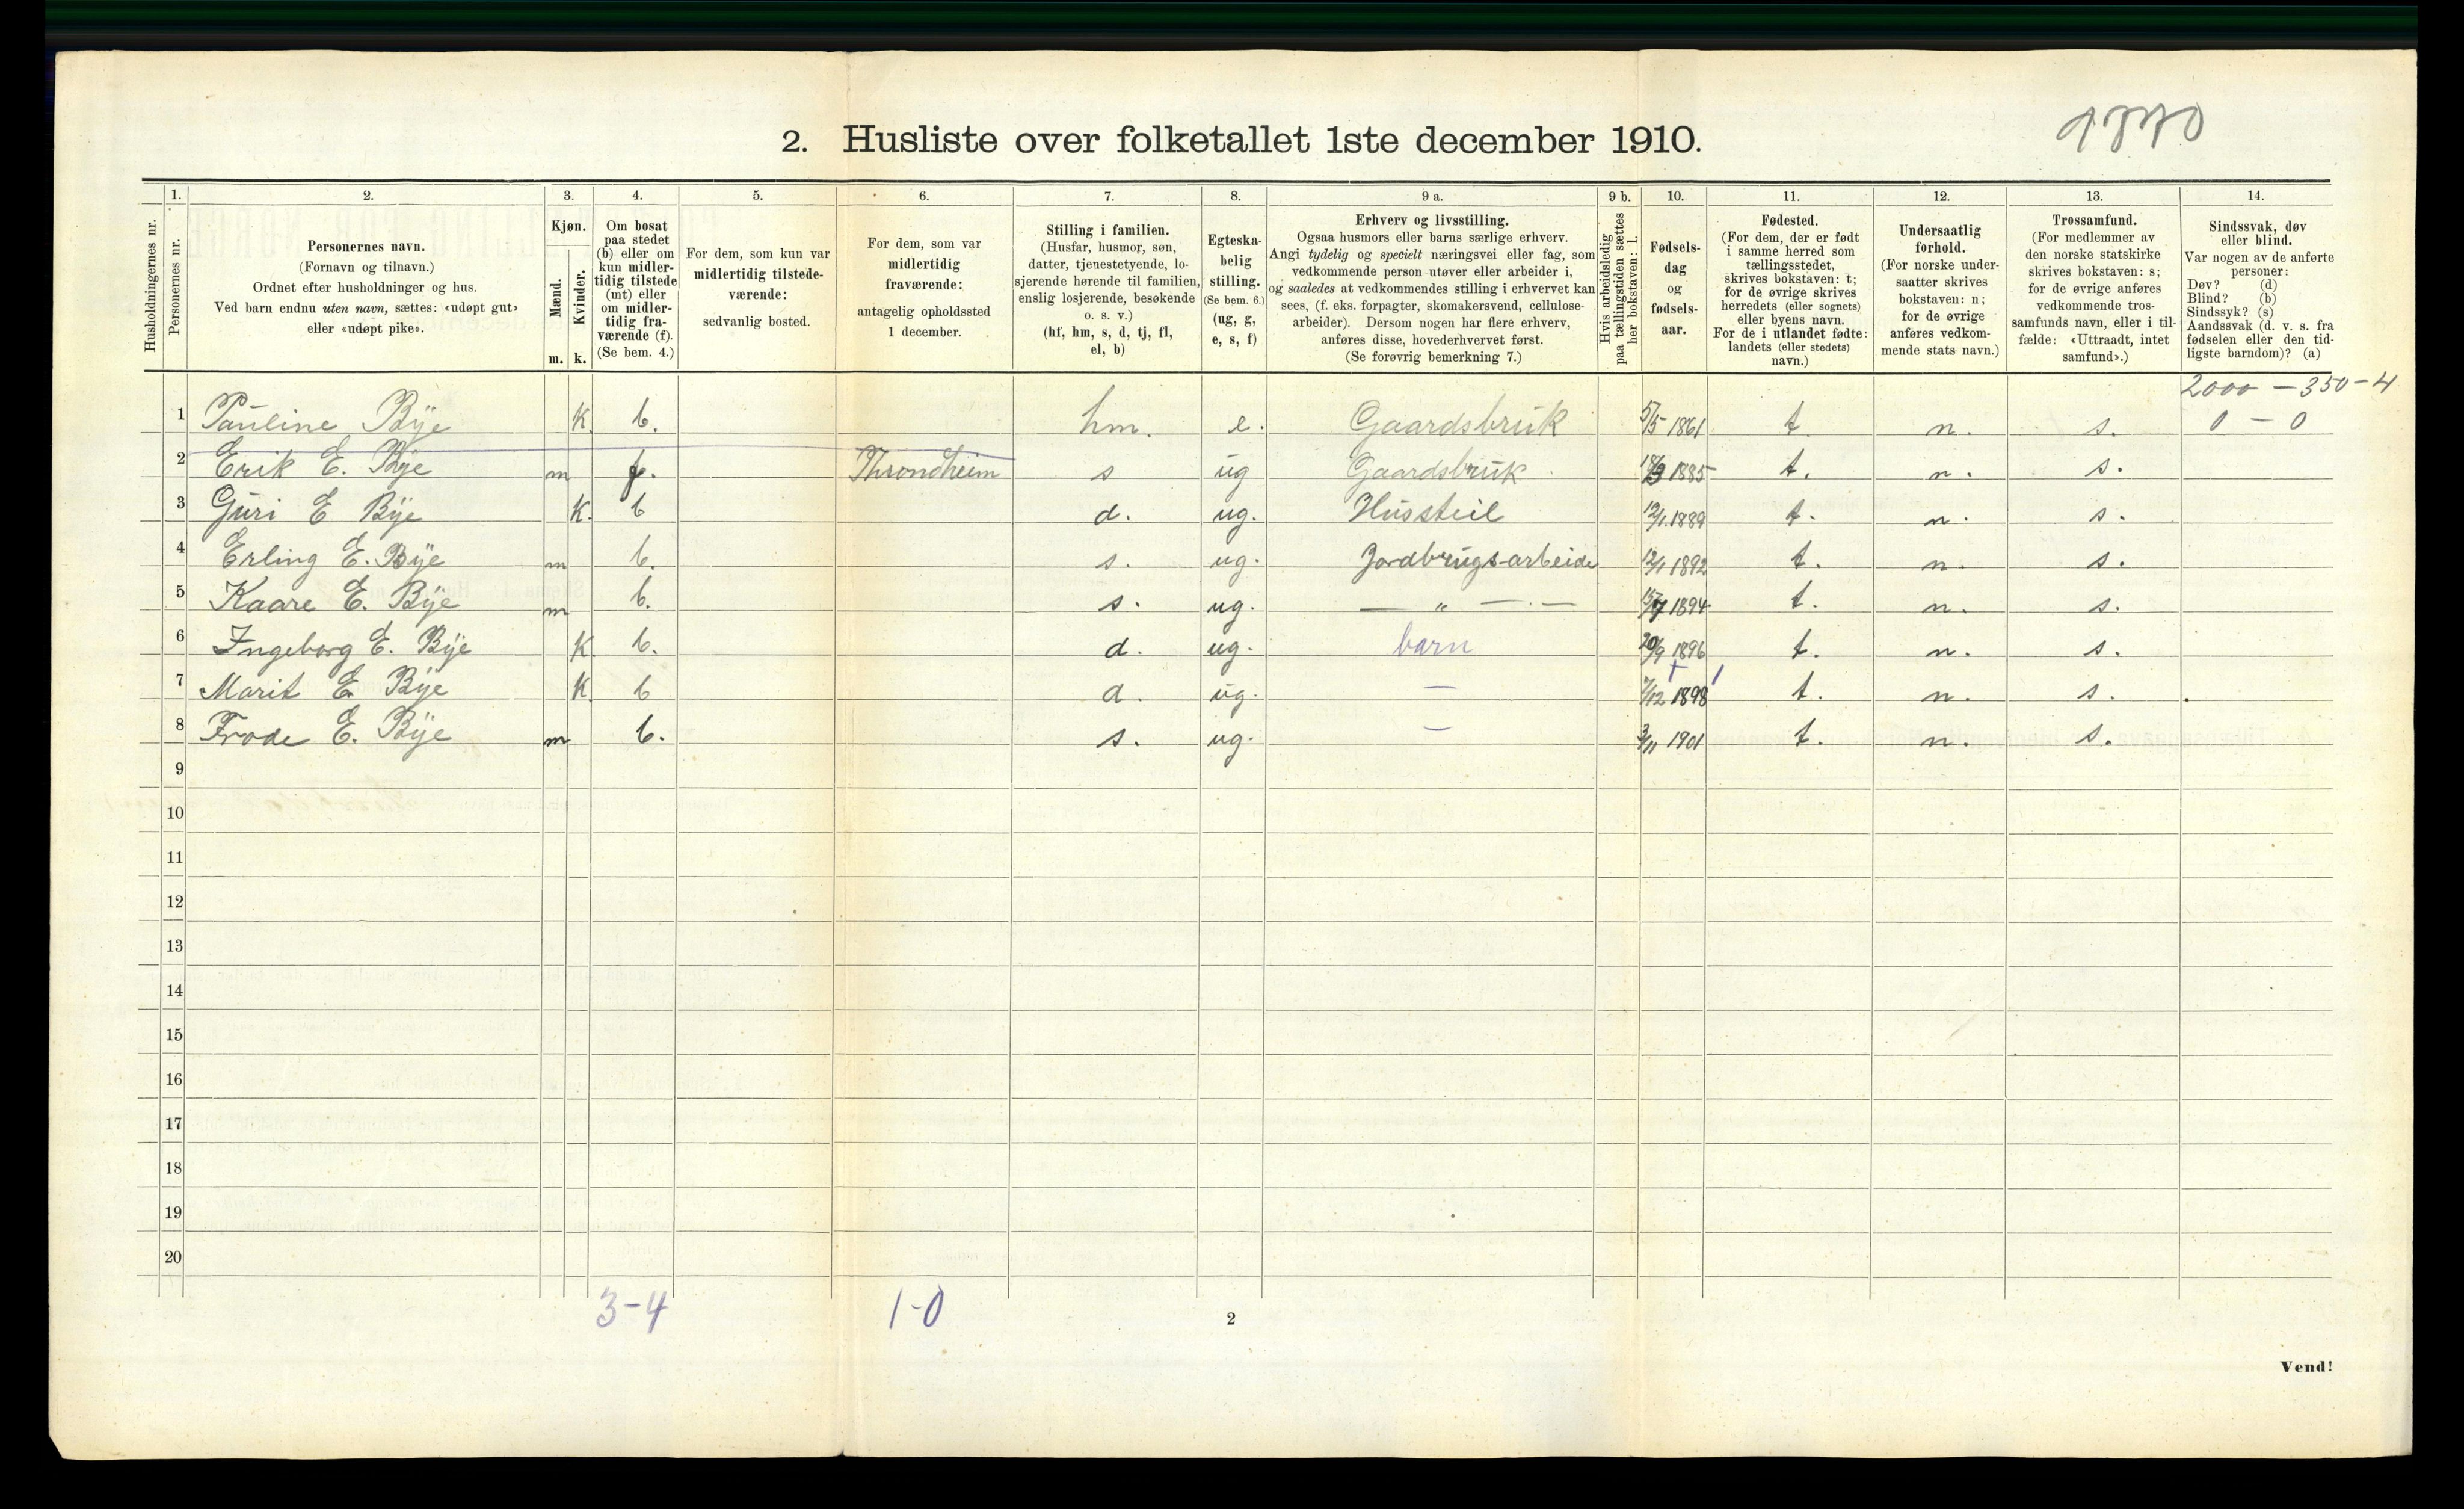 2. Husliste over folketallet 1ste december 1910.
1. 2. 3. 4. 5. 6. 7. 8. 9 a. 9 b. 10. 11. 12. 13. 14.
Husholdningernes nr.
Personernes nr.
Personernes navn.
(Fornavn og tilnavn.)
Ordnet efter husholdninger og hus.
Ved barn endnu uten navn, sættes: «udøpt gut»
eller «udøpt pike».
Kjøn.
Mænd.
Kvinder.
m. k.
Om bosat
paa stedet
(b) eller om
kun midler-
tidig tilstede
(mt) eller
om midler-
tidig fra-
værende (f).
(Se bem. 4.)
For dem, som kun var
midlertidig tilstede-
værende:
sedvanlig bosted.
For dem, som var
midlertidig
fraværende:
antagelig opholdssted
1 december.
Stilling i familien.
(Husfar, husmor, søn,
datter, tjenestetyende, lo-
sjerende hørende til familien,
enslig losjerende, besøkende
o. s. v.)
(hf, hm, s, d, tj, fl,
el, b)
Egteska-
belig
stilling.
(Se bem. 6.)
(ug, g,
e, s, f)
Erhverv og livsstilling.
Ogsaa husmors eller barns særlige erhverv.
Angi tydelig og specielt næringsvei eller fag, som
vedkommende person utøver eller arbeider i,
og saaledes at vedkommendes stilling i erhvervet kan
sees, (f. eks. forpagter, skomakersvend, cellulose-
arbeider). Dersom nogen har flere erhverv,
anføres disse, hovederhvervet først.
(Se forøvrig bemerkning 7.)
Hvis arbeidsledig
paa tællingstiden sættes
her bokstaven: l.
Fødsels-
dag
og
fødsels-
aar.
Fødested.
(For dem, der er født
i samme herred som
tællingsstedet,
skrives bokstaven: t;
for de øvrige skrives
herredets (eller sognets)
eller byens navn.
For de i utlandet fødte:
landets (eller stedets)
navn.)
Undersaatlig
forhold.
(For norske under-
saatter skrives
bokstaven: n;
for de øvrige
anføres vedkom-
mende stats navn.)
Trossamfund.
(For medlemmer av
den norske statskirke
skrives bokstaven: s;
for de øvrige anføres
vedkommende tros-
samfunds navn, eller i til-
fælde: «Uttraadt, intet
samfund».)
Sindssvak, døv
eller blind.
Var nogen av de anførte
personer:
Døv? (d)
Blind? (b)
Sindssyk? (s)
Aandssvak (d. v. s. fra
fødselen eller den tid-
ligste barndom)? (a)
2000 - 350 - 4
1 Pauline Bye K. b. hm. e. Gaardsbruk 5/5 1861 t. n. s. 0 - 0
2 Erik E. Bye m f. Throndheim s ug Gaardsbruk 1885 t. n. s.
3 Guri E Bye K. b d. ug. Hussteil 12/1 1889 t. n. s.
4 Erling E. Bye m b. s. ug. Jordbrugs-arbeide 12/1 1892 t. n. s.
5 Kaare E. Bye m b. s. ug. — „ — 1894 t. n. s.
6 Ingeborg E. Bye K. b. d. ug. barn 20/9 1896 t. n. s.
7 Marit E. Bye K. b d. ug. — 7/12 1898 t. n. s.
8 Frode E. Bye m b. s. ug. — 3/11 1901 t. n. s.
9
10
11
12
13
14
15
16
17
18
19
20
3-4 1-0
2
Vend!